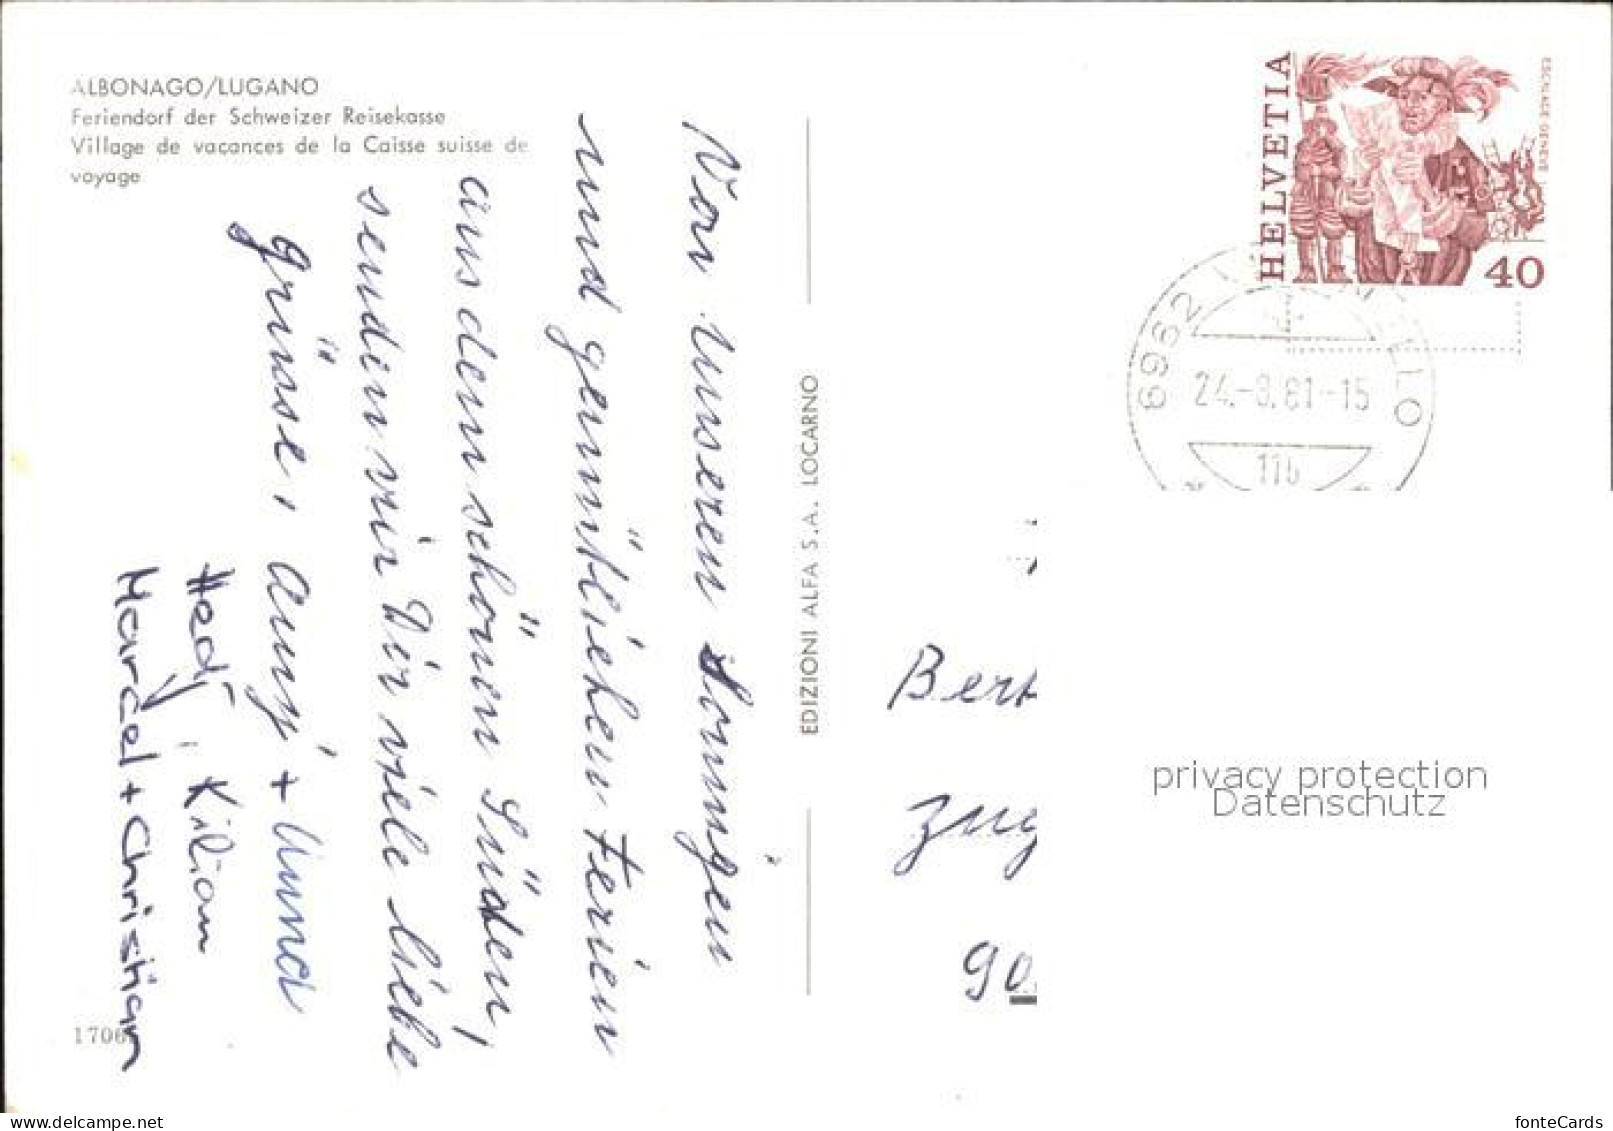 ALBONAGO/LUGANO
Feriendorf der Schweizer Reisekasse
Village de vacances de la Caisse suisse de
voyage
Von Unseren sonnigen
und gemütlichen Ferien
aus dem schönen Süden,
senden wir Dir viele liebe
grüsse,
Hedy, Kilian
Marcel + Christian
1706
EDIZIONI ALFA S.A. LOCARNO
HELVETIA
ESCALADE GENÈVE
40
6962
24.-8.81-15
Bert
Zug
90
privacy protection
Datenschutz
delcampe.net
fonteCards